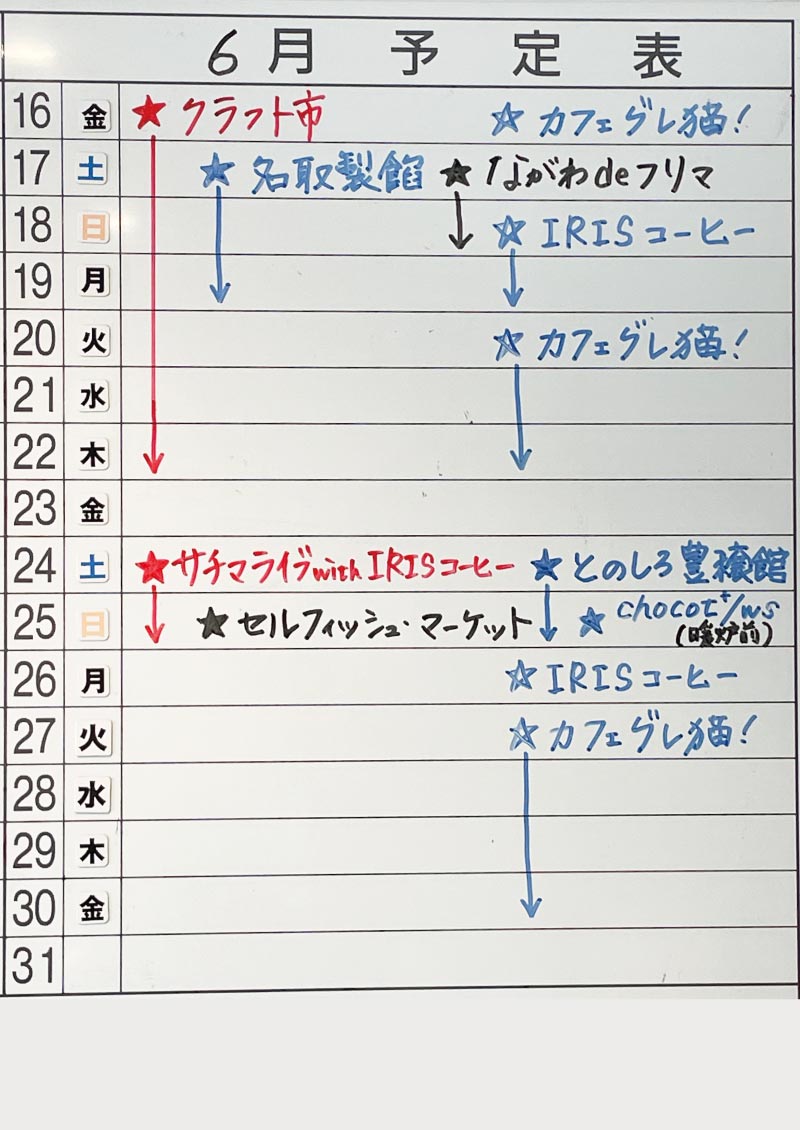 6月 予定表
16 金 ★クラフト市 ☆カフェグレ猫!
17 土 ★名取製餡 ★ながわdeフリマ
18 日 ☆IRISコーヒー
19 月
20 火 ☆カフェグレ猫!
21 水
22 木
23 金
24 土 ★サチマライブwith IRISコーヒー ★とのしろ豊穣館
25 日 ★セルフィッシュ・マーケット ★chocot+/ws
(暖炉前)
26 月 ☆IRISコーヒー
27 火 ☆カフェグレ猫!
28 水
29 木
30 金
31